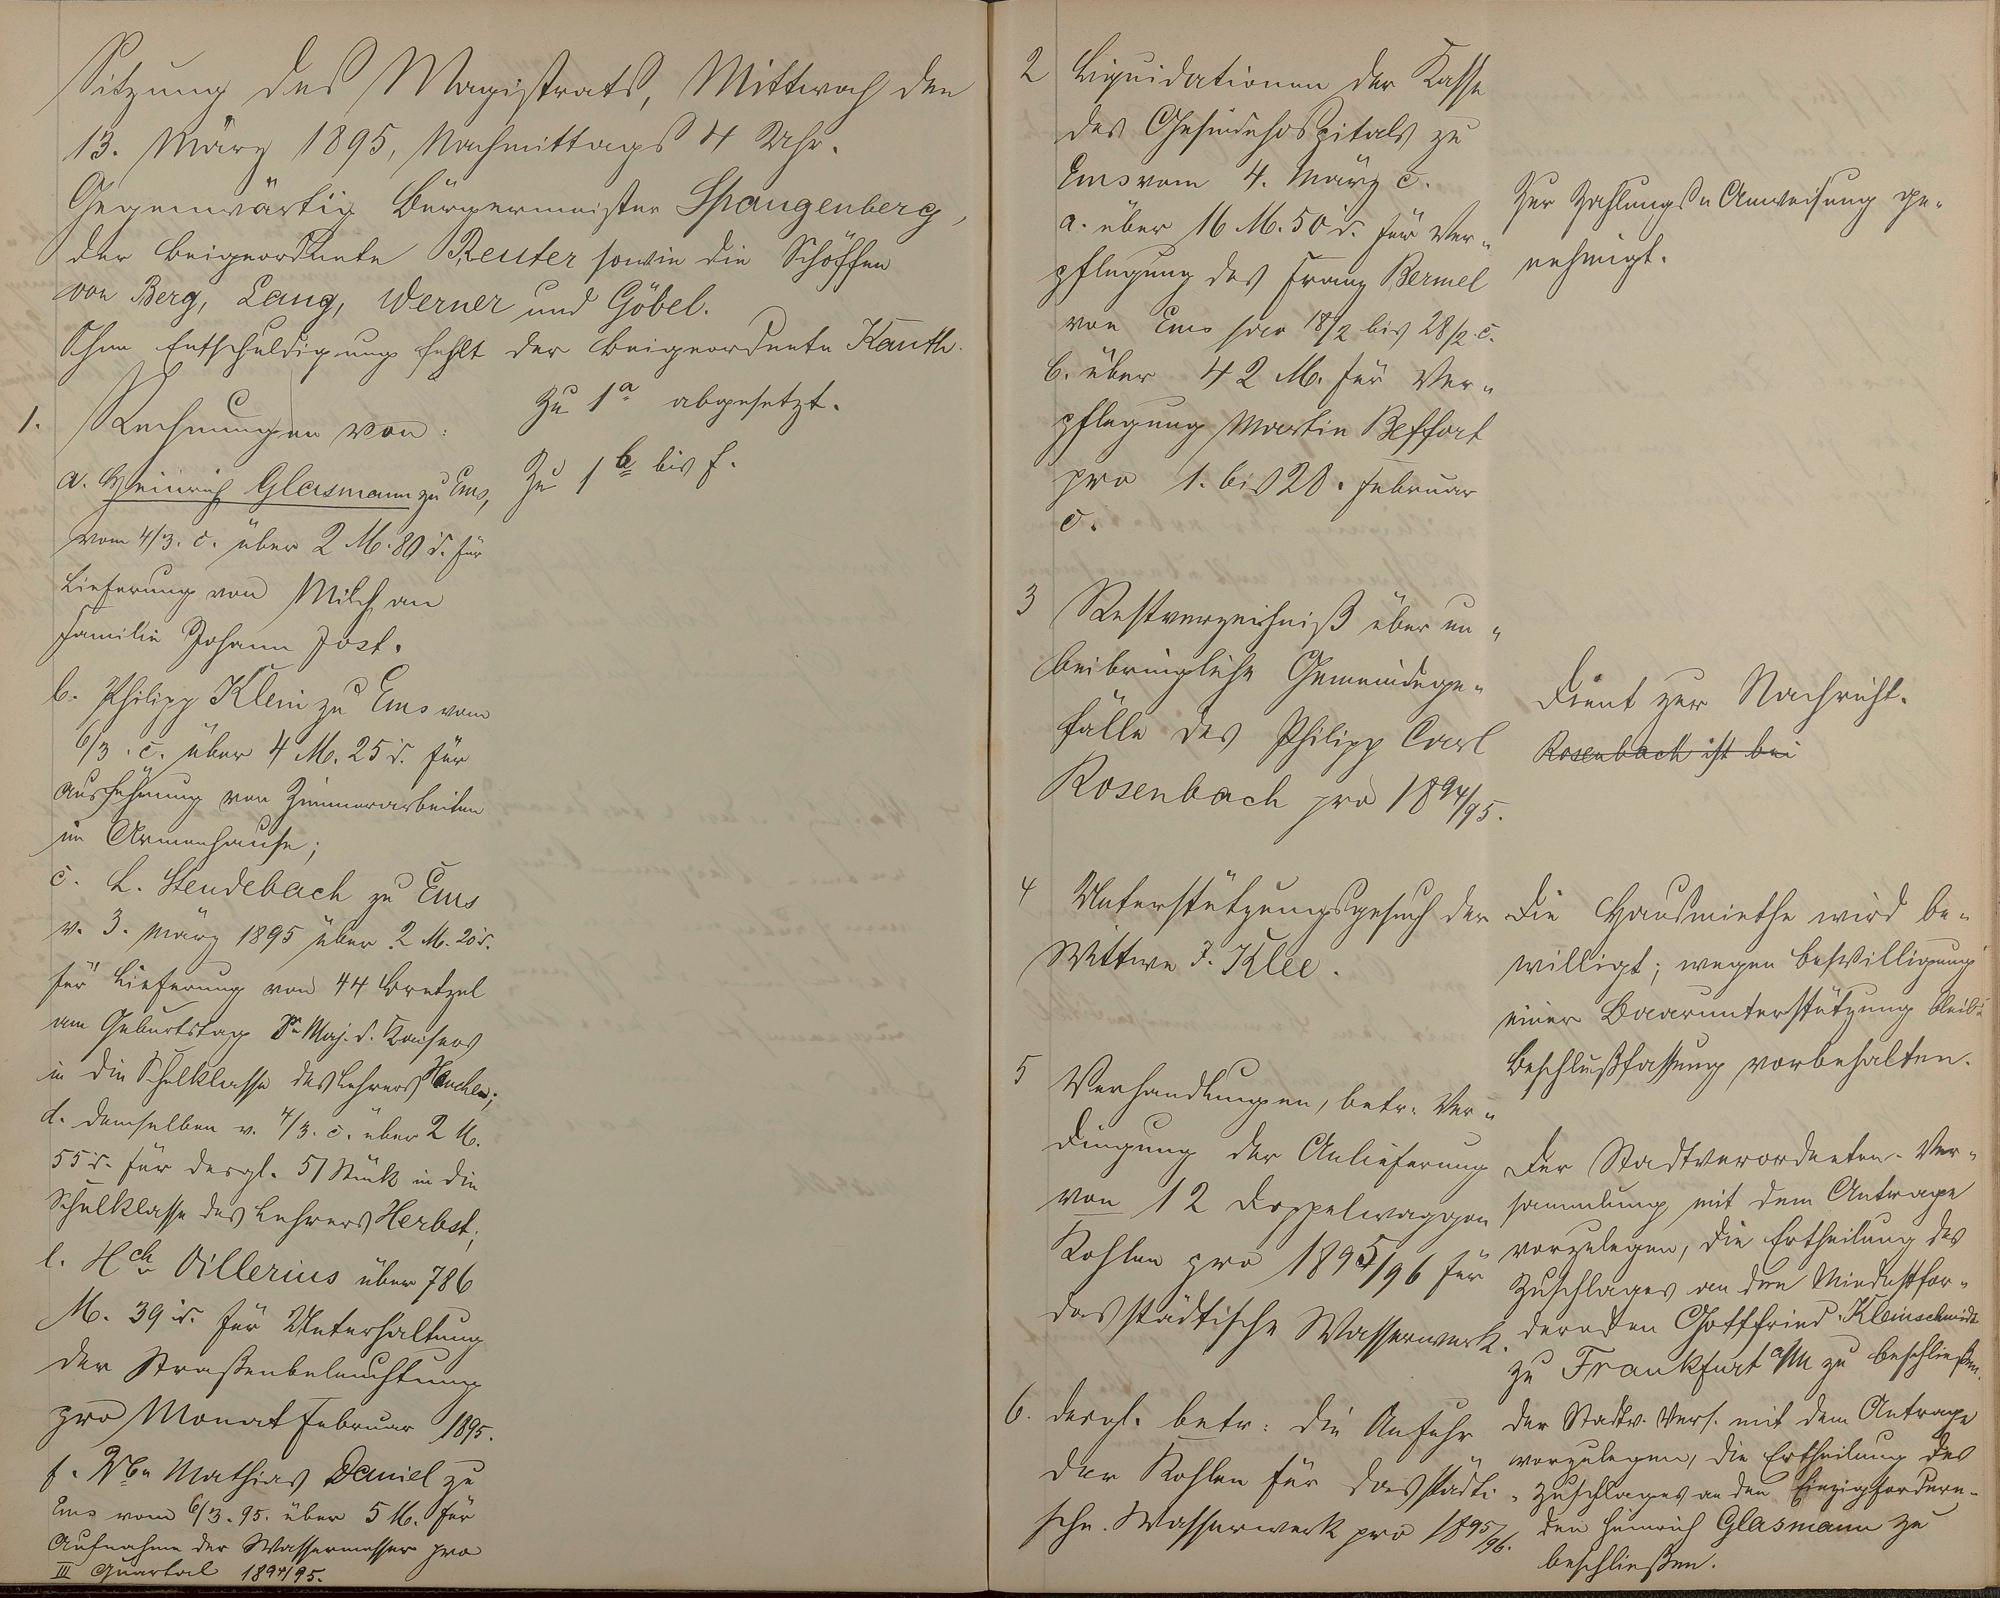 Sitzung des Magistrats, Mittwoch den
13. März 1895, Nachmittags 4 Uhr.
Gegenwärtig Bürgermeister Spangenberg,
der Beigeordnete Reuter sowie die Schöffen
von Berg, Lang, Werner und Göbel.
Ohne Entschuldigung fehlt der Beigeordnete Kauth.
1. Rechnungen von:
a. Heinrich Glasmann zu Ems,
vom 4/3. c. über 2 M. 80 d. für
Lieferung von Milch an
Familie Johann Jost.
b. Philipp Klein zu Ems vom
6/3. c. über 4 M. 25 d. für
Ausführung von Zimmerarbeiten
im Armenhause;
c. L. Stendebach zu Ems
v. 3. März 1895 über 2 M. 20 d.
für Lieferung von 44 Bretzel
am Geburtstag Sr Maj. d. Kaisers
in die Schulklasse des Lehrers
d. demselben v. 4/3. c. über 2 M.
55 d. für desgl. 51 Stück in die
Schulklasse des Lehrers Herbst;
e. Hch Oillerius über 786
M. 39 d. für Unterhaltung
der Straßenbeleuchtung
pro Monat Februar 1895.
f. Mathias Daniel zu
Ems vom 6/3. 95. über 5 M. für
Aufnahme der Wassermesser pro
III Quartal 1894/95.
Zu 1a abgesetzt.
Zu 1b bis f.
2 Liquidationen der Kasse
des Gesindehospitals zu
Ems vom 4. März c.
a. über 16 M. 50 d. für Ver-
pflegung des Franz Bermel
von Ems pro 18/2 bis 28/2. c.
b. über 42 M. für Ver-
pflegung Martin Beffort
pro 1. bis 28. Februar
c.
Zur Zahlungs-Anweisung ge-
nehmigt.
3 Restverzeichniß über un-
beibringliche Gemeindege-
fälle des Philipp Carl
Rosenbach pro 1894/95.
Dient zur Nachricht.
Rosenbach ist bei
4 Unterstützungsgesuch der
Wittwe J. Klee.
Die Hausmiethe wird be-
willigt; wegen Bewilligung
einer Baarunterstützung bleibt
Beschlußfassung vorbehalten.
5 Verhandlungen, betr. Ver-
dingung der Anlieferung
von 12 Doppelwaggon
Kohlen pro 1895/96 für
das städtische Wasserwerk.
Der Stadtverordneten-Ver-
sammlung mit dem Antrage
vorzulegen, die Ertheilung des
Zuschlages an den Mindestfor-
dernden Gottfried Kleinschmidt
zu Frankfurt a/M zu beschließen.
6. desgl. betr. die Anfuhr
der Kohlen für das städti-
sche Wasserwerk pro 1895/96.
Der Stadtv. Vers. mit dem Antrage
vorzulegen, die Ertheilung des
Zuschlages an den Einzigfordern-
den Heinrich Glasmann zu
beschließen.